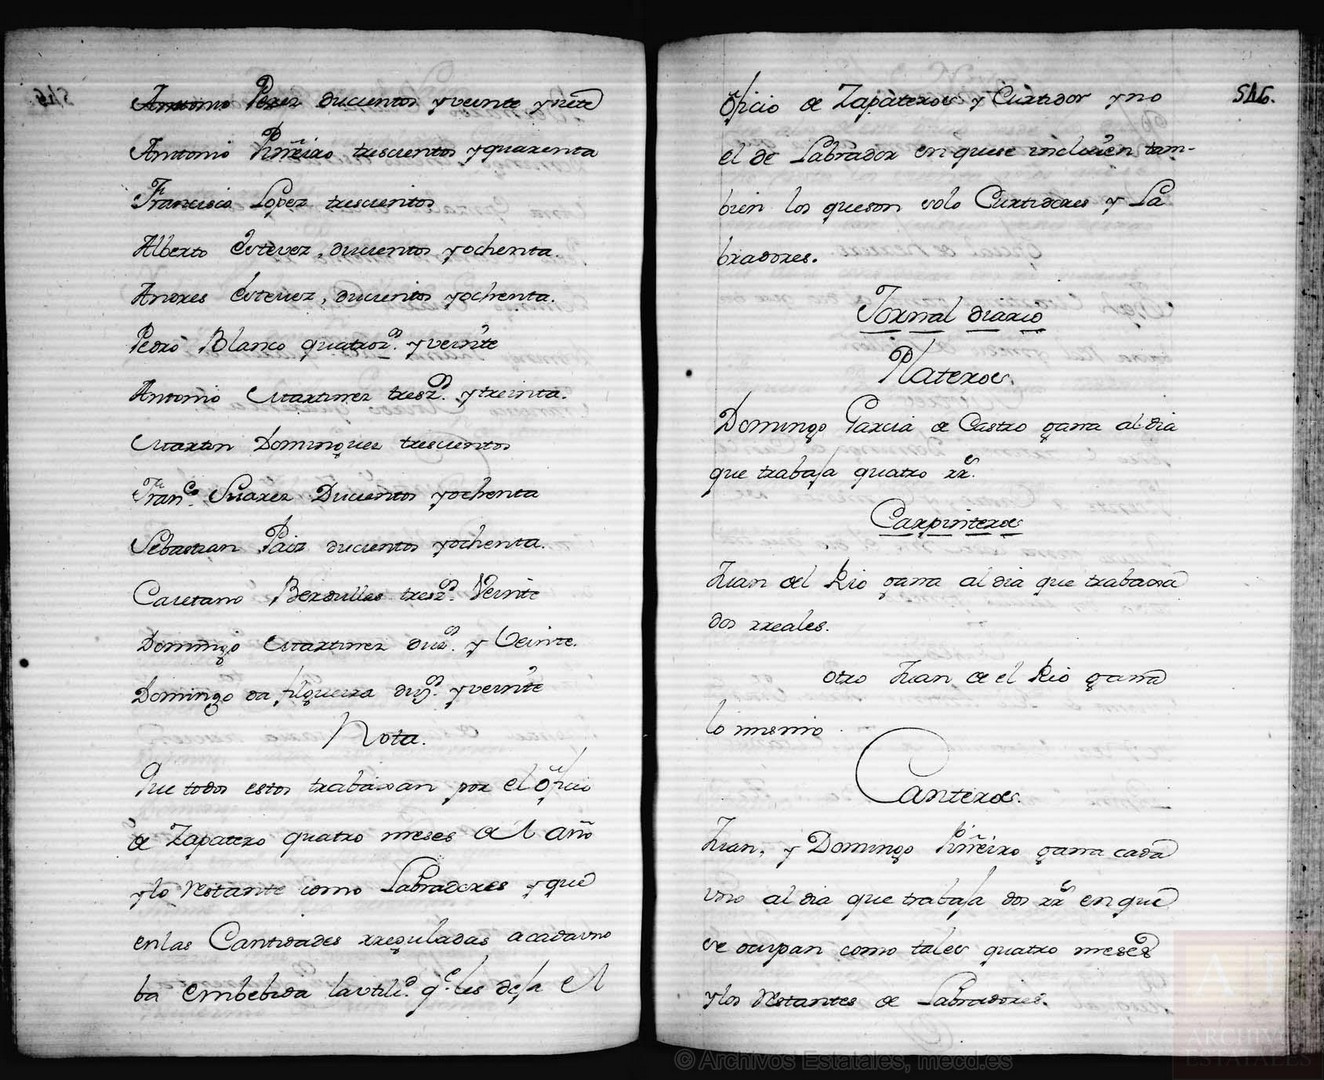 Antonio Perez ducientos y veinte y siete
Antonio Piñeiro trescientos y quarenta
Francisco Lopez trescientos
Alberto Estevez, ducientos y ochenta.
Andres Estevez, ducientos y ochenta.
Pedro Blanco quatroz.s y veinte
Antonio Martinez tresz.s y treinta.
Martin Dominguez trescientos
Fran.co Suarez Ducientos y ochenta
Sebastian Paiz ducientos y ochenta.
Caietano Berdullas tresz.s Veinte
Domingo Martinez duz.s y Veinte.
Domingo da filgueira duz.s y veinte
Nota.
Que todos estos trabaxan por el oficio
de Zapatero quatro meses de el año
y lo restante como Labradores y que
en las Cantidades rreguladas a cada uno
ba embebida la utili.d q.e les deja el
546.
oficio de Zapateros y Curtidor y no
el de Labrador en que se incluien tam-
bien los que son solo Curtidores y La
bradores.
Jornal diario
Plateros.
Domingo Garcia de Castro gana al dia
que trabaja quatro rr.s
Carpinteros
Juan del Rio gana al dia que trabaxa
dos rreales.
Otro Juan de el Rio gana
lo mismo
Canteros.
Juan, y Domingo Piñeiro gana cada
uno al dia que trabaja dos rr.s en que
se ocupan como tales quatro meses
y los restantes de Labradores.
© Archivos Estatales, mecd.es
ARCHIVOS
ESTATALES